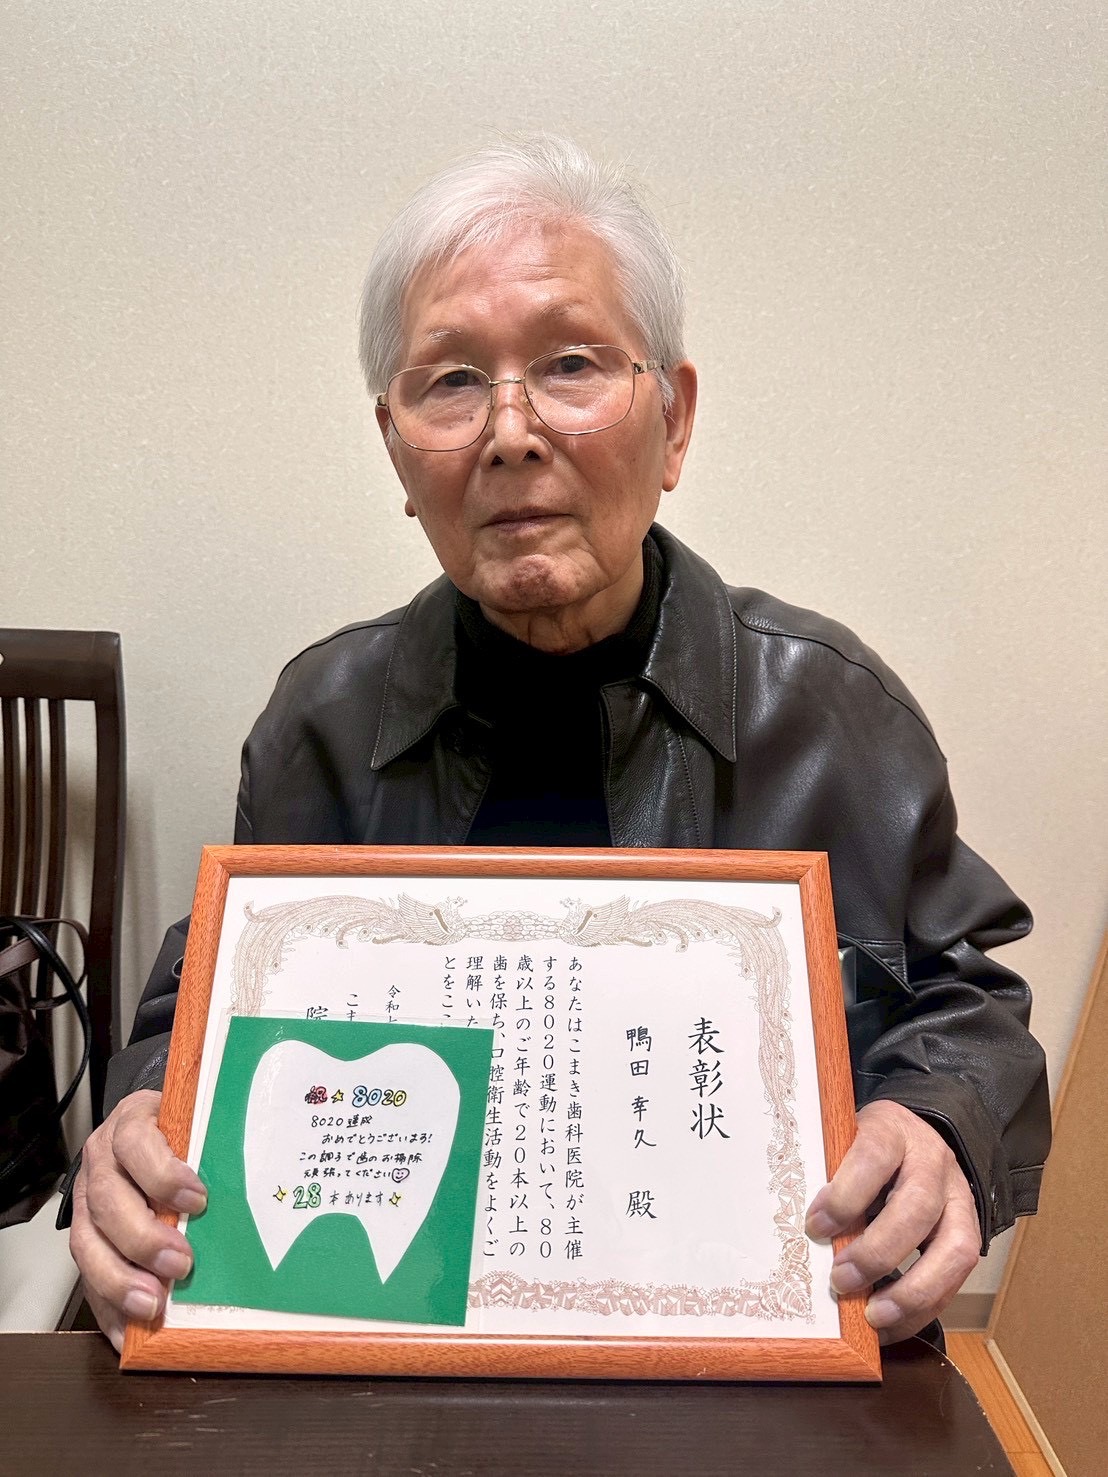 表彰状
鴨田 幸久 殿
あなたはこまき歯科医院が主催
する8020運動において、80
歳以上のご年齢で20本以上の
歯を保ち、口腔衛生活動をよくご
理解いた
とをここ
令和
こま
院
祝☆8020
8020達成
おめでとうございます!
この調子で歯のお掃除
頑張ってください
28本あります